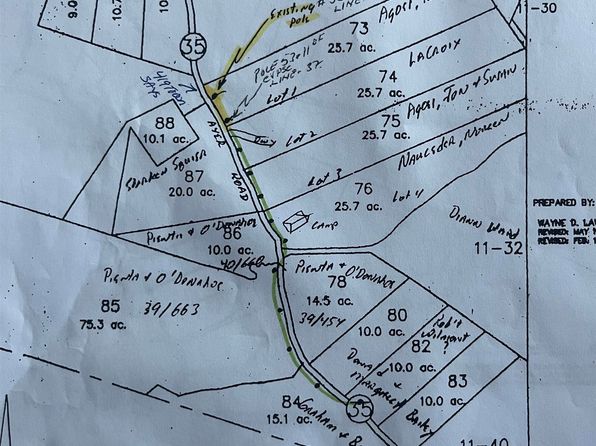 9.0
10.7
10.
EXISTING
POLE
LINE
35
73
25.7 ac.
Agosi,
-30
POLE 37
LINE. 37.
SAYS
LaCroix
74
25.7 ac.
Lot 1
88
10.1 ac.
AYER
ROAD
75
25.7 ac.
Agosi, Jon & Susan
Lot 2
87
20.0 ac.
Lot 3
76
25.7 ac.
Lot 4
Diann Ward
CAMP
PREPARED BY:
WAYNE D. LA
REVISED: MAY
REVISED: FEB. 1
11-32
Pienta & O'Donahoe
86
10.0 ac.
40/660
Pienta & O'Donahoe
78
14.5 ac.
39/454
Pienta & O'Donahoe
85
75.3 ac.
39/663
80
10.0 ac.
Rob't
Wilmont
82
10.0 ac.
Donald &
Margaret Bailey
83
10.0 ac.
84
15.1 ac.
Graham & B
35
11-40